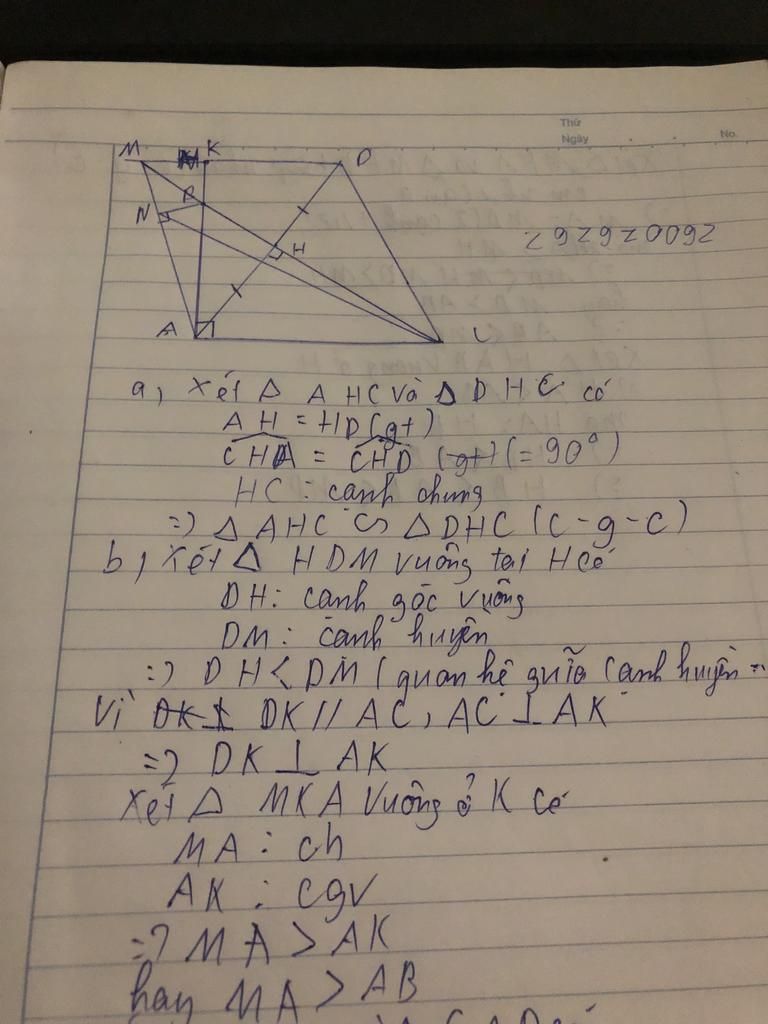 Thứ
Ngày
No.
M K D
N B
H
260076267
A C
a, Xét Δ AHC và Δ DHC có
AH = HD (gt)
CHA = CHD (gt) (= 90°)
HC : cạnh chung
=> Δ AHC ∽ Δ DHC (c-g-c)
b, Xét Δ HDM vuông tại H có
DH : cạnh góc vuông
DM : cạnh huyền
=> DH < DM (quan hệ giữa cạnh huyền -
Vì DK ⊥ DK // AC, AC ⊥ AK
=> DK ⊥ AK
Xét Δ MKA vuông ở K có
MA : ch
AK : cgv
=> MA > AK
hay MA > AB